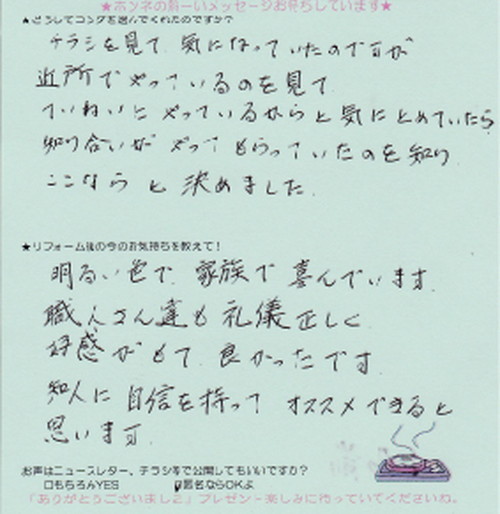 ★ホンネの熱ーいメッセージお待ちしています★
★どうしてコンゲを選んでくれたのですか？
チラシを見て 気になっていたのですが
近所でやっているのを見て
ていねいにやっているからと気にとめていたら
知り合いが やってもらっていたのを知り
ここならと 決めました.
★リフォーム後の今のお気持ちを教えて！
明るい色で. 家族で喜んでいます.
職人さん達も礼儀正しく
好感がもて. 良かったです.
知人に 自信を持って オススメできると
思います.
お声はニュースレター、チラシ等で公開してもいいですか？
□もちろんYES 匿名ならOKよ
「ありがとうございました」プレゼント楽しみに待っていてくださいね。